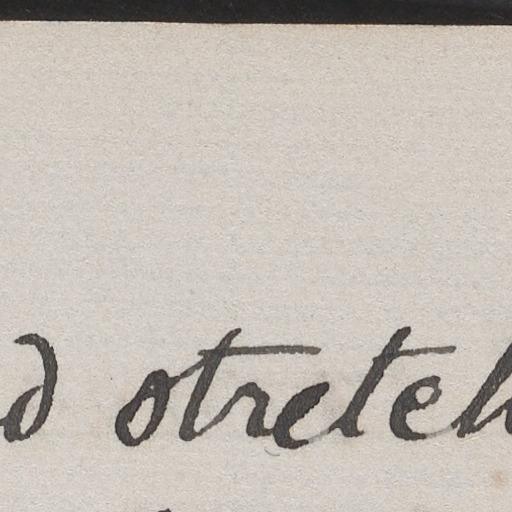 d stretch